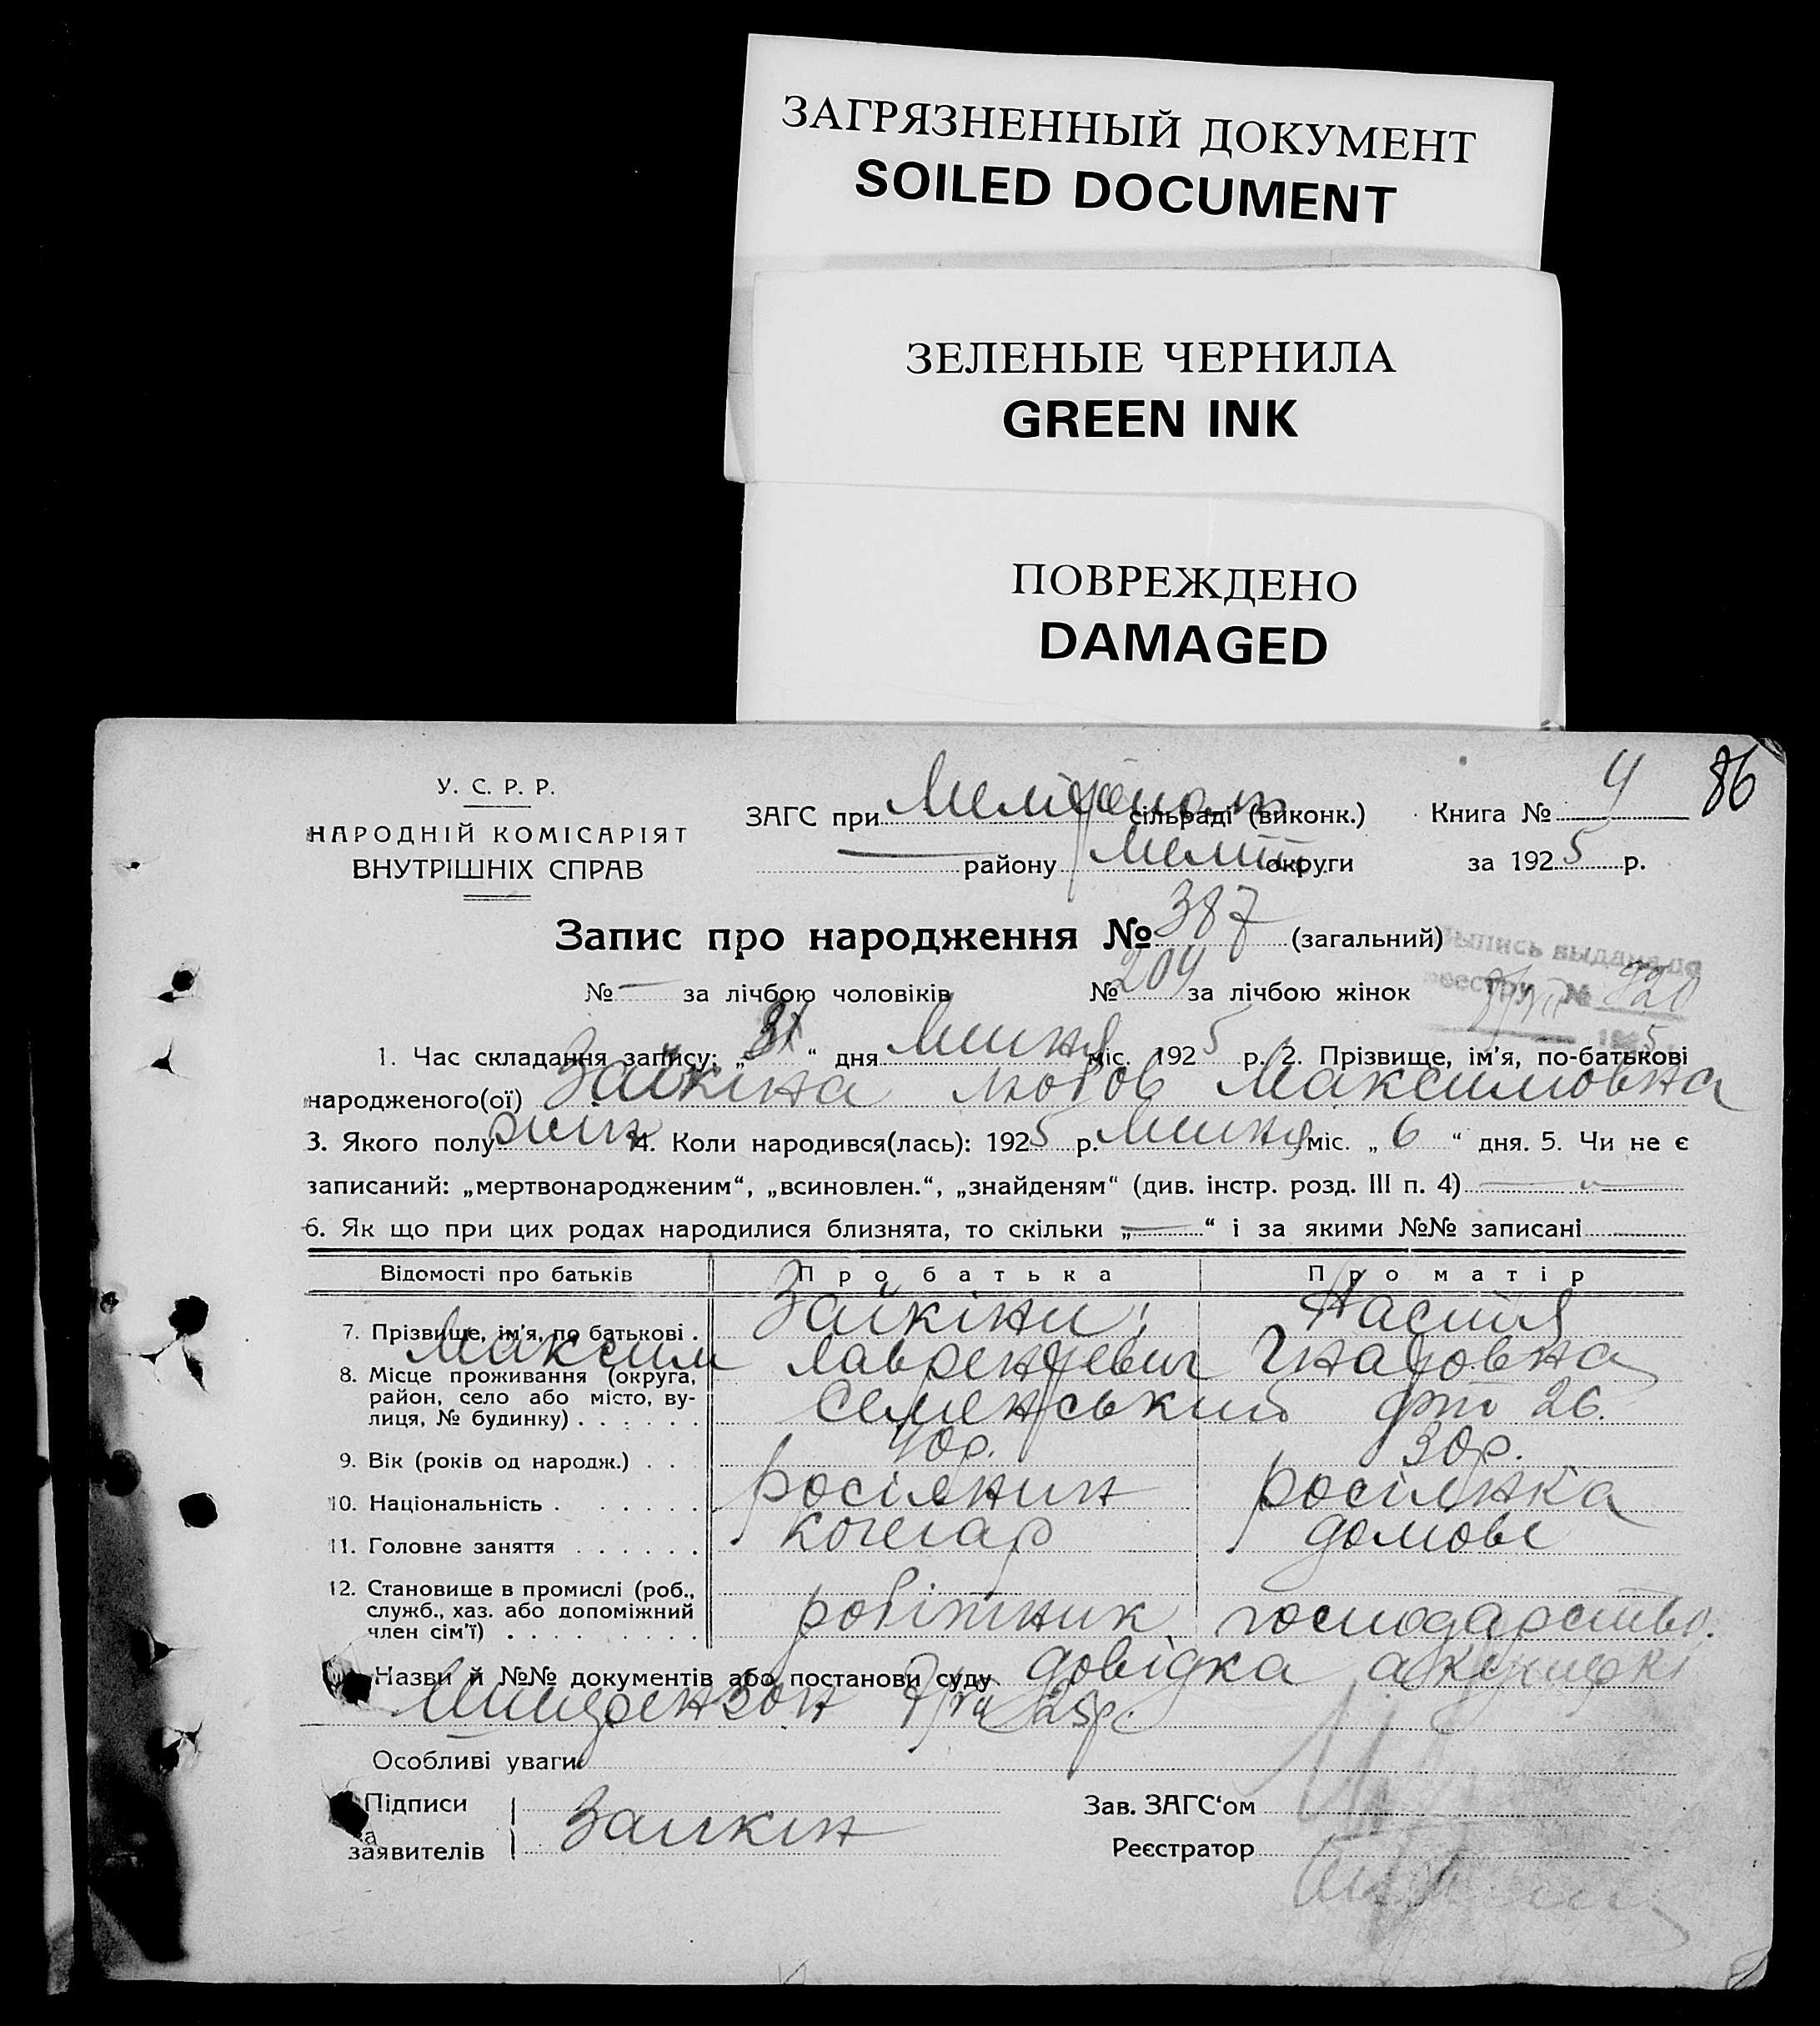 ЗАГРЯЗНЕННЫЙ ДОКУМЕНТ
SOILED DOCUMENT
ЗЕЛЕНЫЕ ЧЕРНИЛА
GREEN INK
ПОВРЕЖДЕНО
DAMAGED
4 86
У. С. Р. Р.
НАРОДНІЙ КОМІСАРІЯТ
ВНУТРІШНІХ СПРАВ
ЗАГС при сільраді (виконк.) Книга №
району Меліт. округи за 1925 р.
Запис про народження № 387 (загальний)
№ — за лічбою чоловіків № 204 за лічбою жінок
Выпись выдана по
реестру №
1. Час складання запису: „31“ дня Липня міс. 1925 р. 2. Прізвище, ім'я, по-батькові
народженого(ої) Зайкіна Любов Максимовна
3. Якого полу жін 4. Коли народився(лась): 1925 р. Липня міс. „6“ дня. 5. Чи не є
записаний: „мертвонародженим“, „всиновлен.“, „знайденям“ (див. інстр. розд. III п. 4) —
6. Як що при цих родах народилися близнята, то скільки „—“ і за якими №№ записані
Відомості про батьків Про батька Про матір
7. Прізвище, ім'я, по батькові . Зайкіни; Настя
Максим Лаврентьевич Гнатовна
8. Місце проживання (округа,
район, село або місто, ву-
лиця, № будинку) . . . . . . 26.
9. Вік (років од народж.) . . 40р. 30р.
10. Національність . . . . . . росіянин росіянка
11. Головне заняття . . . . . . кочегар домове
12. Становище в промислі (роб.,
служб., хаз. або допоміжний
член сім'ї) . . . . . . . . . робітник господарство.
Назви й №№ документів або постанови суду довідка акушерки
25р.
Особливі уваги
Підписи
заявителів Заикин
Зав. ЗАГС'ом
Реєстратор